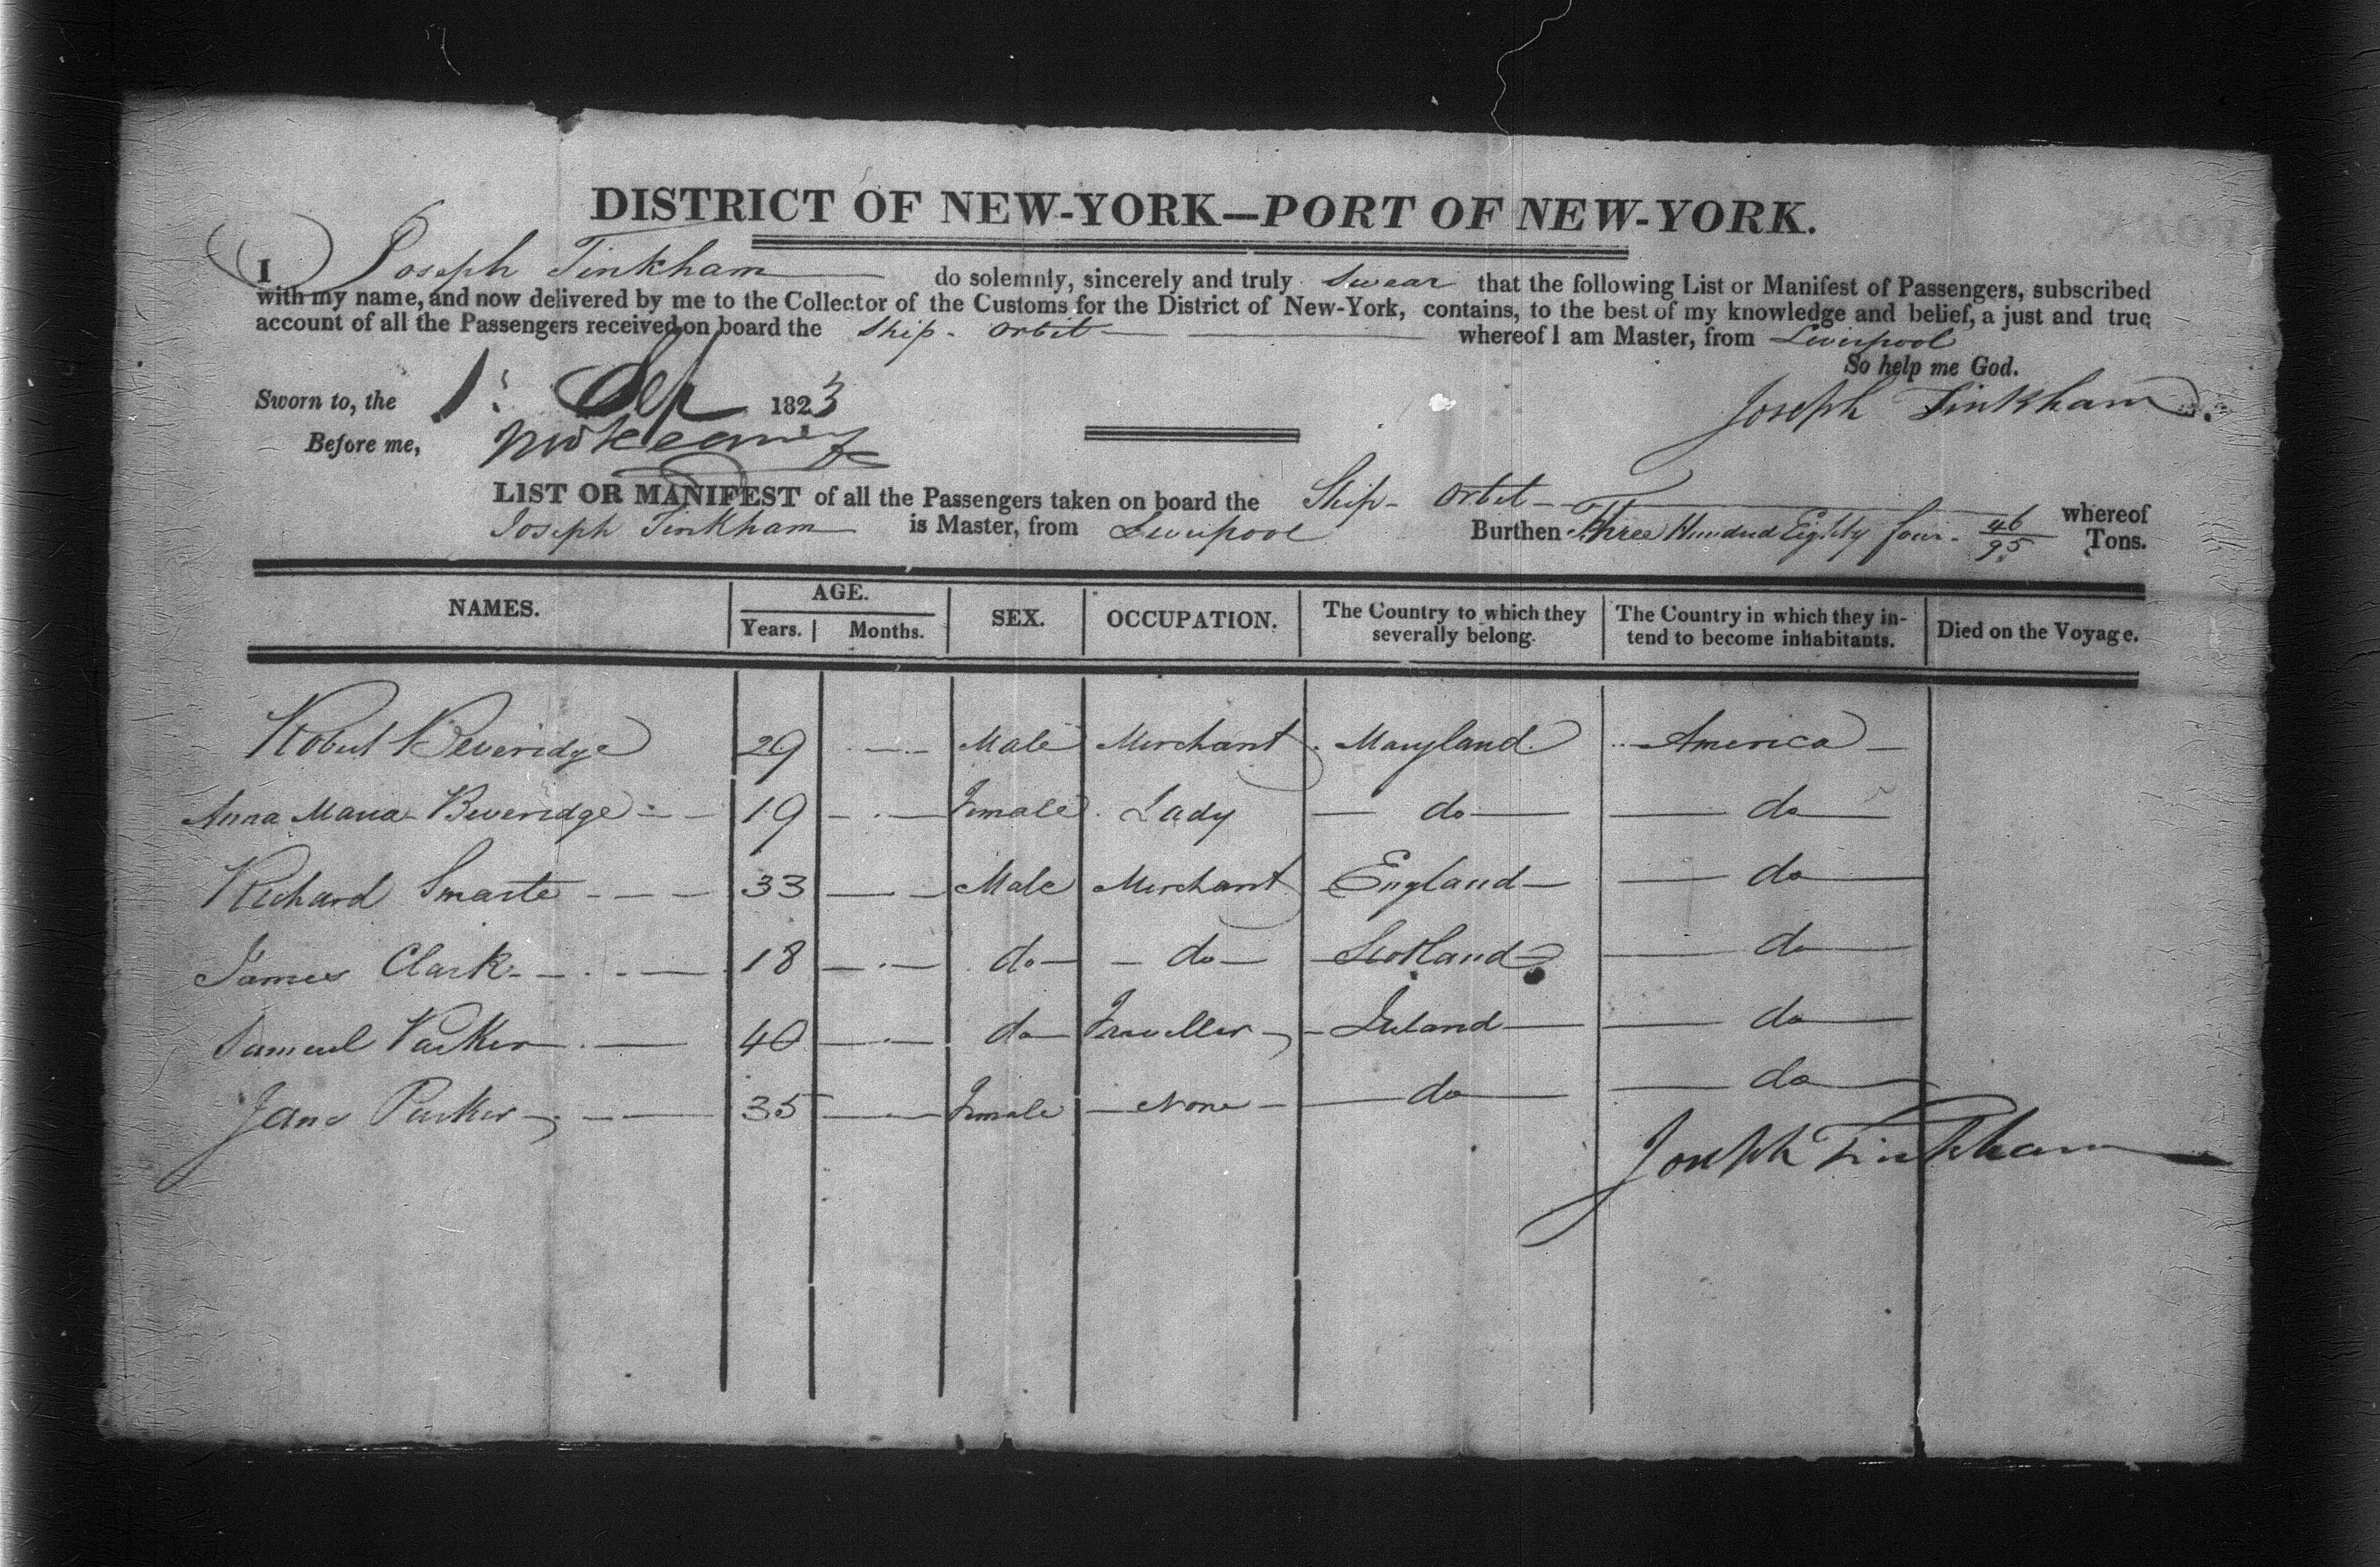 DISTRICT OF NEW-YORK—PORT OF NEW-YORK.
I Joseph Tinkham do solemnly, sincerely and truly swear that the following List or Manifest of Passengers, subscribed
with my name, and now delivered by me to the Collector of the Customs for the District of New-York, contains, to the best of my knowledge and belief, a just and true
account of all the Passengers received on board the Ship - Orbit whereof I am Master, from Liverpool
So help me God.
Sworn to, the 1: Sep 1823
Joseph Tinkham
Before me,
LIST OR MANIFEST of all the Passengers taken on board the Ship - Orbit - whereof
Joseph Tinkham is Master, from Liverpool Burthen Three Hundred Eighty four - 46/95 Tons.
NAMES. AGE. Years. Months. SEX. OCCUPATION. The Country to which they severally belong. The Country in which they intend to become inhabitants. Died on the Voyage.
Robert Beveridge 29 Male Merchant Maryland America
Anna Maria Beveridge 19 Female Lady do do
Richard Smarte 33 Male Merchant England do
James Clark 18 do do Scotland do
Samuel Parker 40 do Traveller Ireland do
Jane Parker 35 Female None do do
Joseph Tinkham